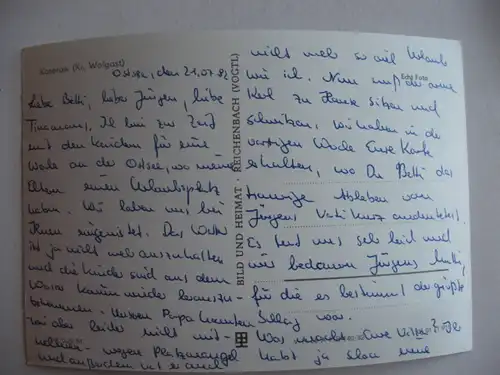 (Kr. Wolgast)
Ostsee, den 21.07.82
Liebe Betti, lieber Jürgen, liebe
Ich bin zur Zeit
mit den Kindern für eine
Woche an der Ostsee, wo meine
Eltern einen Urlaubsplatz
haben. Wir haben uns bei
ihnen eingenistet. Das Wetter
ist ja nicht mehr auszuhalten
und die Kinder sind aus dem
Wasser kaum wieder herauszu-
bekommen. Unseren Papa konnten
wir aber leider nicht mit-
nehmen wegen Platzmangel
und außerdem hat er auch
BILD UND HEIMAT · REICHENBACH (VOGTL)
nicht mehr so viel Urlaub
wie ich. Nun muß der arme
Foto
Kerl zu Hause sitzen und
schwitzen. Wir haben in der
vorigen Woche Eure Karte
erhalten, wo Du Betti das
traurige Ableben von
Jürgens Vati kurz andeutetest.
Es tut uns sehr leid und
wir bedauern Jürgens Mutti,
für die es bestimmt der größte
Schlag war.
Was macht Eure
habt ja schon eine